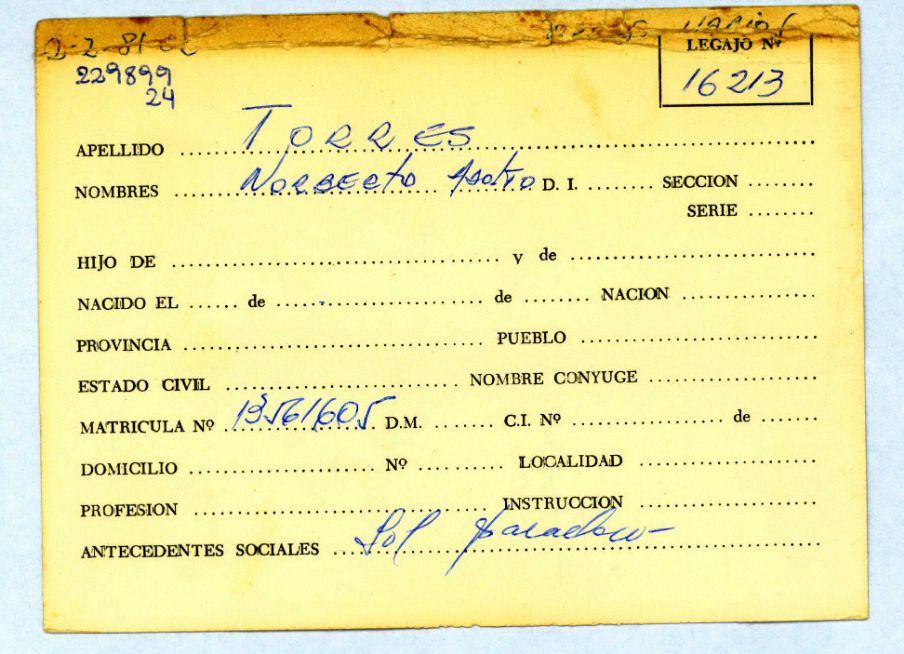 2-2-81
LEGAJO Nº
229899
24
16213
APELLIDO TORRES
NOMBRES Norberto D. I. SECCION
SERIE
HIJO DE y de
NACIDO EL de de NACION
PROVINCIA PUEBLO
ESTADO CIVIL NOMBRE CONYUGE
MATRICULA Nº 13561605 D.M. C.I. Nº de
DOMICILIO Nº LOCALIDAD
PROFESION INSTRUCCION
ANTECEDENTES SOCIALES Sol paradero